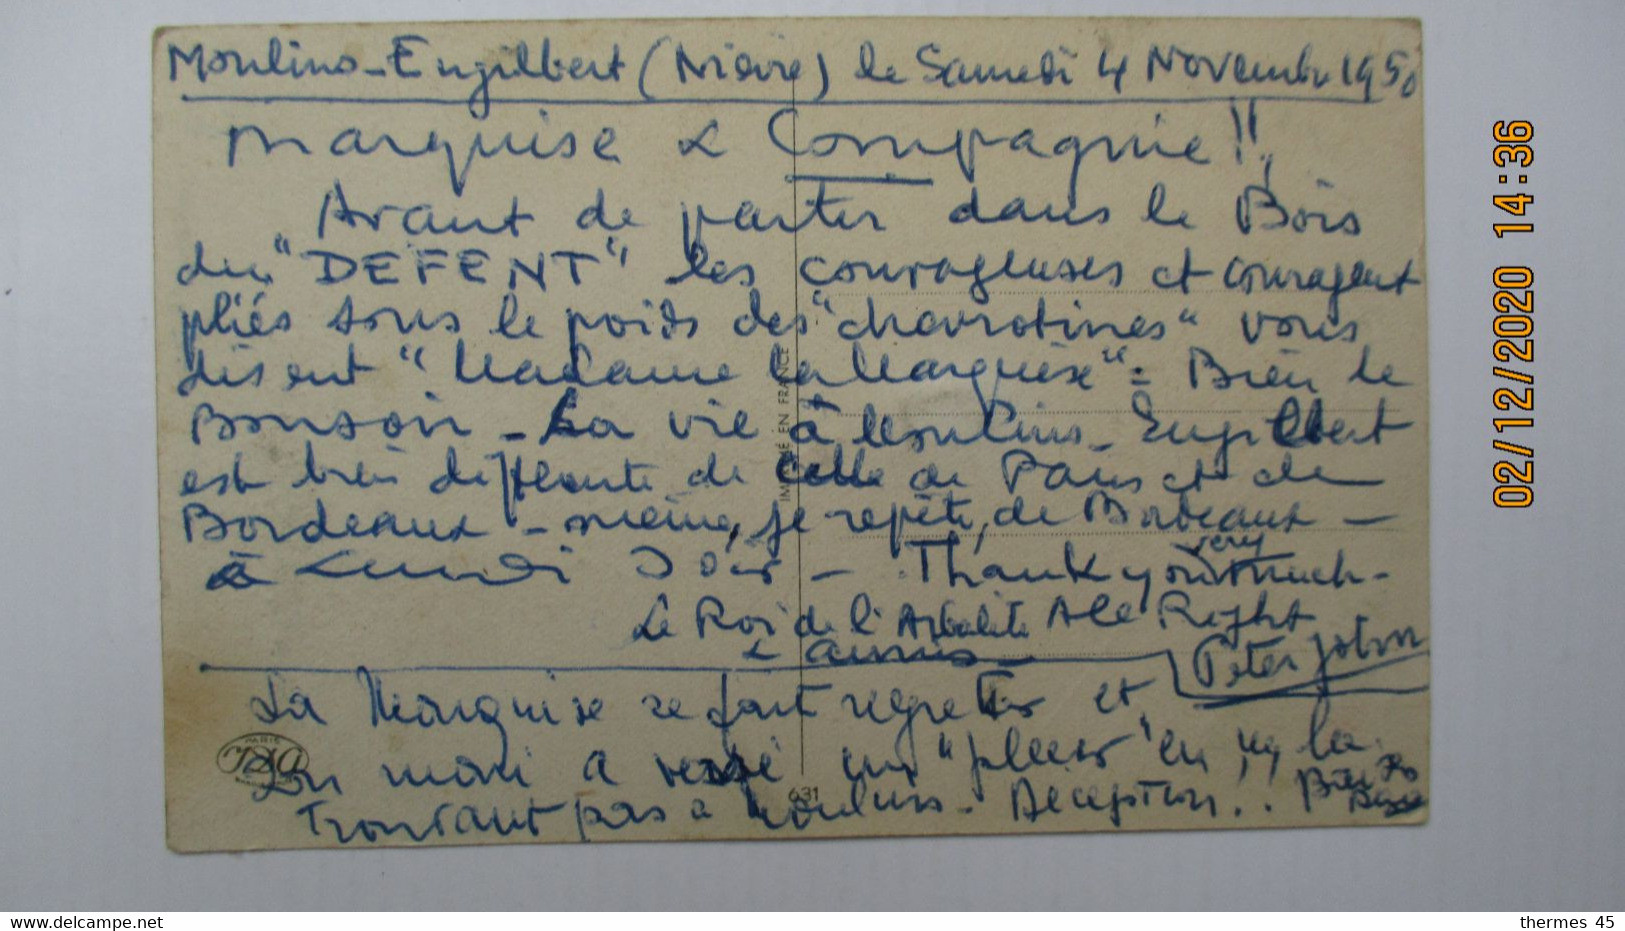 Moulins-Engilbert (Nièvre) le Samedi 4 Novembre 1950
Marquise & Compagnie !!
Avant de partir dans le Bois
du "DEFENT" les courageuses et courageux
pliés sous le poids des "chevrotines" vous
disent "Madame la Marquise" = Bien le
Bonsoir - La vie à Moulins-Engilbert
est bien différente de celle de Paris et de
Bordeaux - même, je répète, de Bordeaux -
à Lundi Soir - Thank you very much -
Le Roi de l'Arbalète All Right
& amis -
Peter John
La Marquise se fait regretter et
son mari a versé un "pleur" en ne la
trouvant pas à Moulins - Déception !! Bien
IMPRIMÉ EN FRANCE
PARIS
631
02/12/2020 14:36
thermes 45